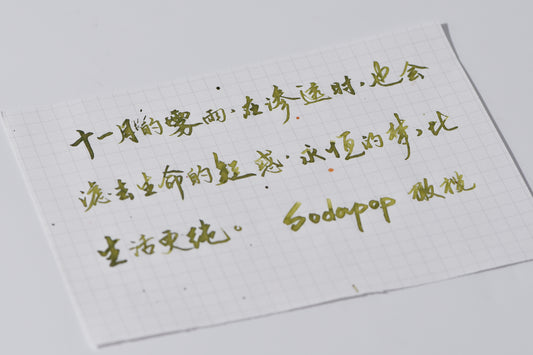 十一月的雾雨、在渗透时、也会
滤去生命的疑惑、永恒的情、比
生活更纯。 Sodapop 橄榄